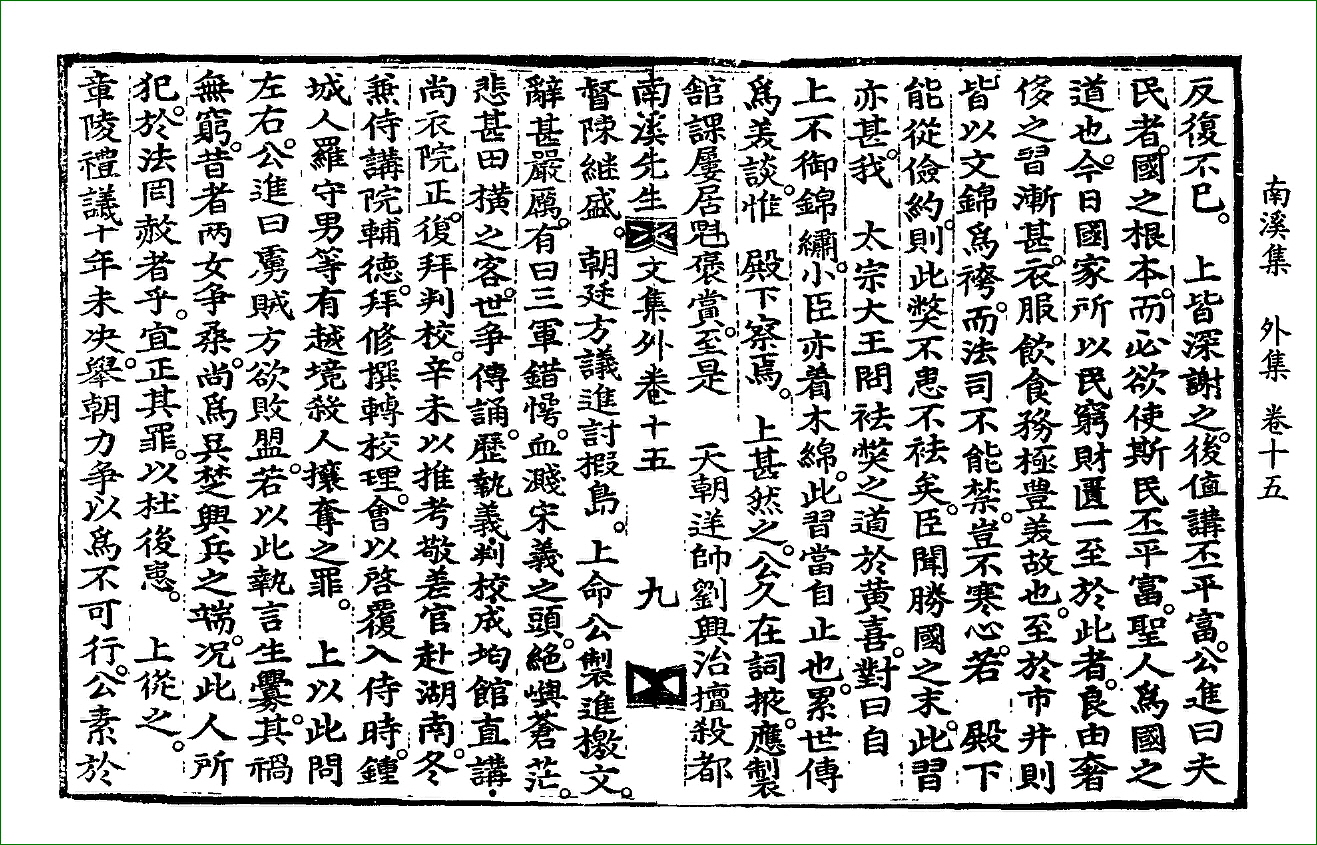 南溪集 外集 卷十五
反復不已。 上皆深謝之。後值講丕平富。公進曰夫
民者。國之根本。而必欲使斯民丕平富。聖人為國之
道也。今日國家所以民窮財匱一至於此者。良由奢
侈之習漸甚。衣服飲食務極豊美故也。至於市井則
皆以文錦爲袴。而法司不能禁。豈不寒心。若 殿下
能從儉約。則此獘不患不袪矣。臣聞勝國之末。此習
亦甚。我 太宗大王問袪獘之道於黄喜。對曰自
上不御錦繡。小臣亦着木綿。此習當自止也。累世傳
爲美談。惟 殿下察焉。 上甚然之。公久在詞掖。應製
舘課屢居魁褒賞。至是 天朝逆帥劉興治擅殺都
南溪先生文集外卷十五 九
督陳継盛。朝廷方議進討椵島。上命公製進檄文。
辭甚嚴厲。有曰三軍錯愕。血濺宋義之頭。絶嶼蒼茫。
悲甚田横之客。世争傳誦。歷執義,判校,成均館直講,
尚衣院正。復拜判校。辛未以推考敬差官赴湖南。冬
兼侍講院輔德。拜修撰轉校理。會以啓覆入侍時。鍾
城人羅守男等有越境殺人攘奪之罪。 上以此問
左右。公進曰虜賊方欲敗盟。若以此執言生釁。其禍
無窮。昔者兩女争桑。尚爲吳楚興兵之端。况此人所
犯。於法罔赦者乎。宜正其罪。以杜後患。 上從之。
章陵禮議十年未决。舉朝力争以爲不可行。公素於